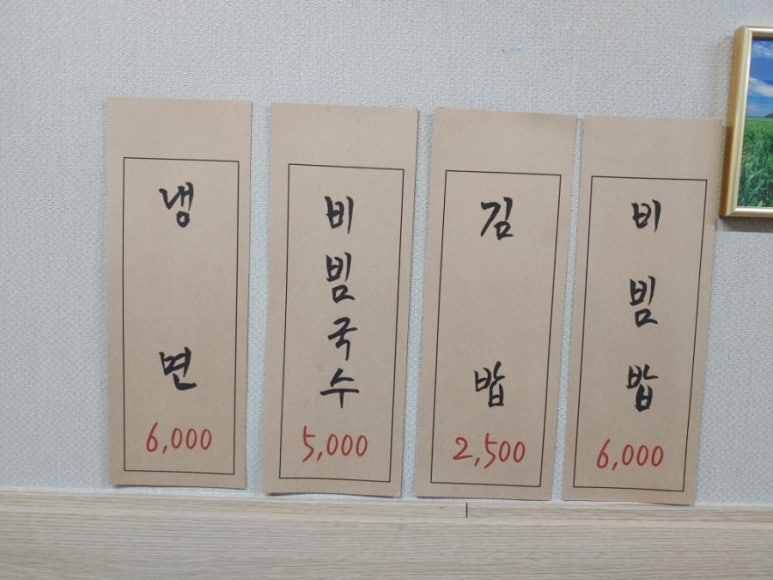 냉면
6,000
비빔국수
5,000
김밥
2,500
비빔밥
6,000